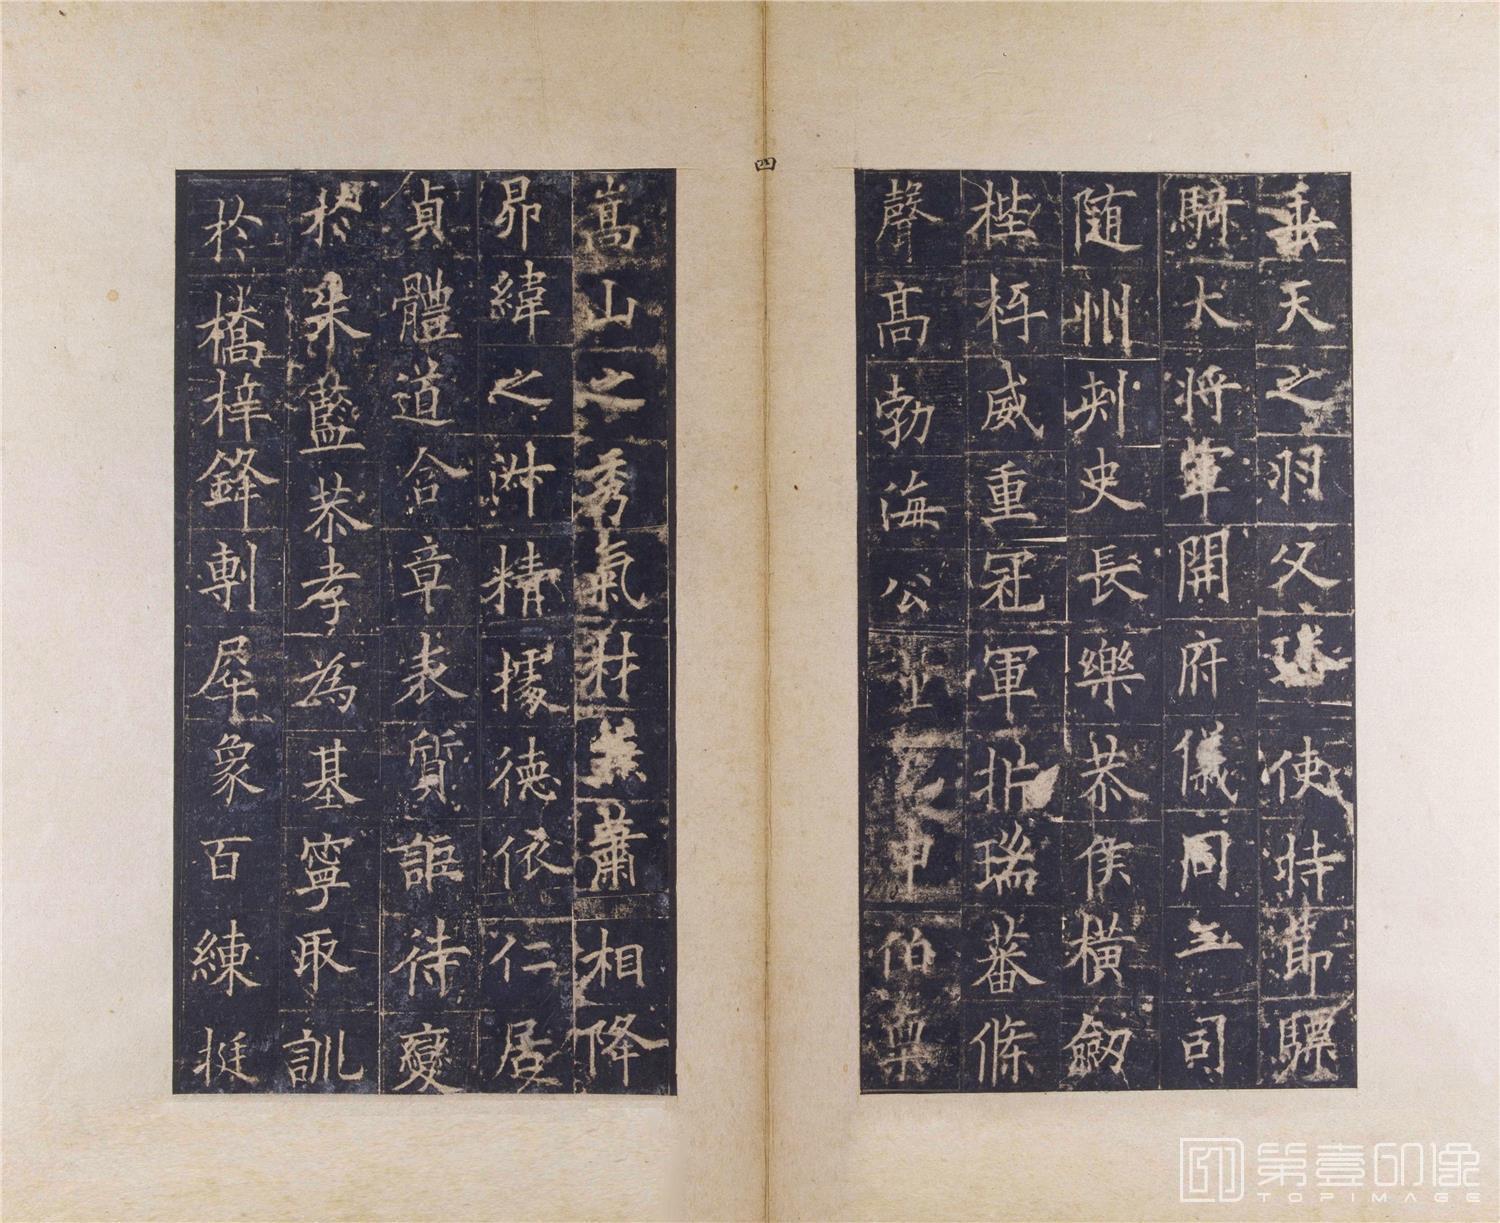 垂天之羽父璠使持節驃
騎大將軍開府儀同三司
隨州刺史長樂恭侯橫劒
梐枑威重冠軍析瑞蕃條
聲髙勃海公申伯稟
嵩山之秀氣材兼蕭相降
昴緯之淑精據德依仁居
貞體道含章表質詎待變
於朱藍恭孝為基寧取訓
於橋梓鋒剸犀象百練挺
四
第壹印像
TOPIMAGE